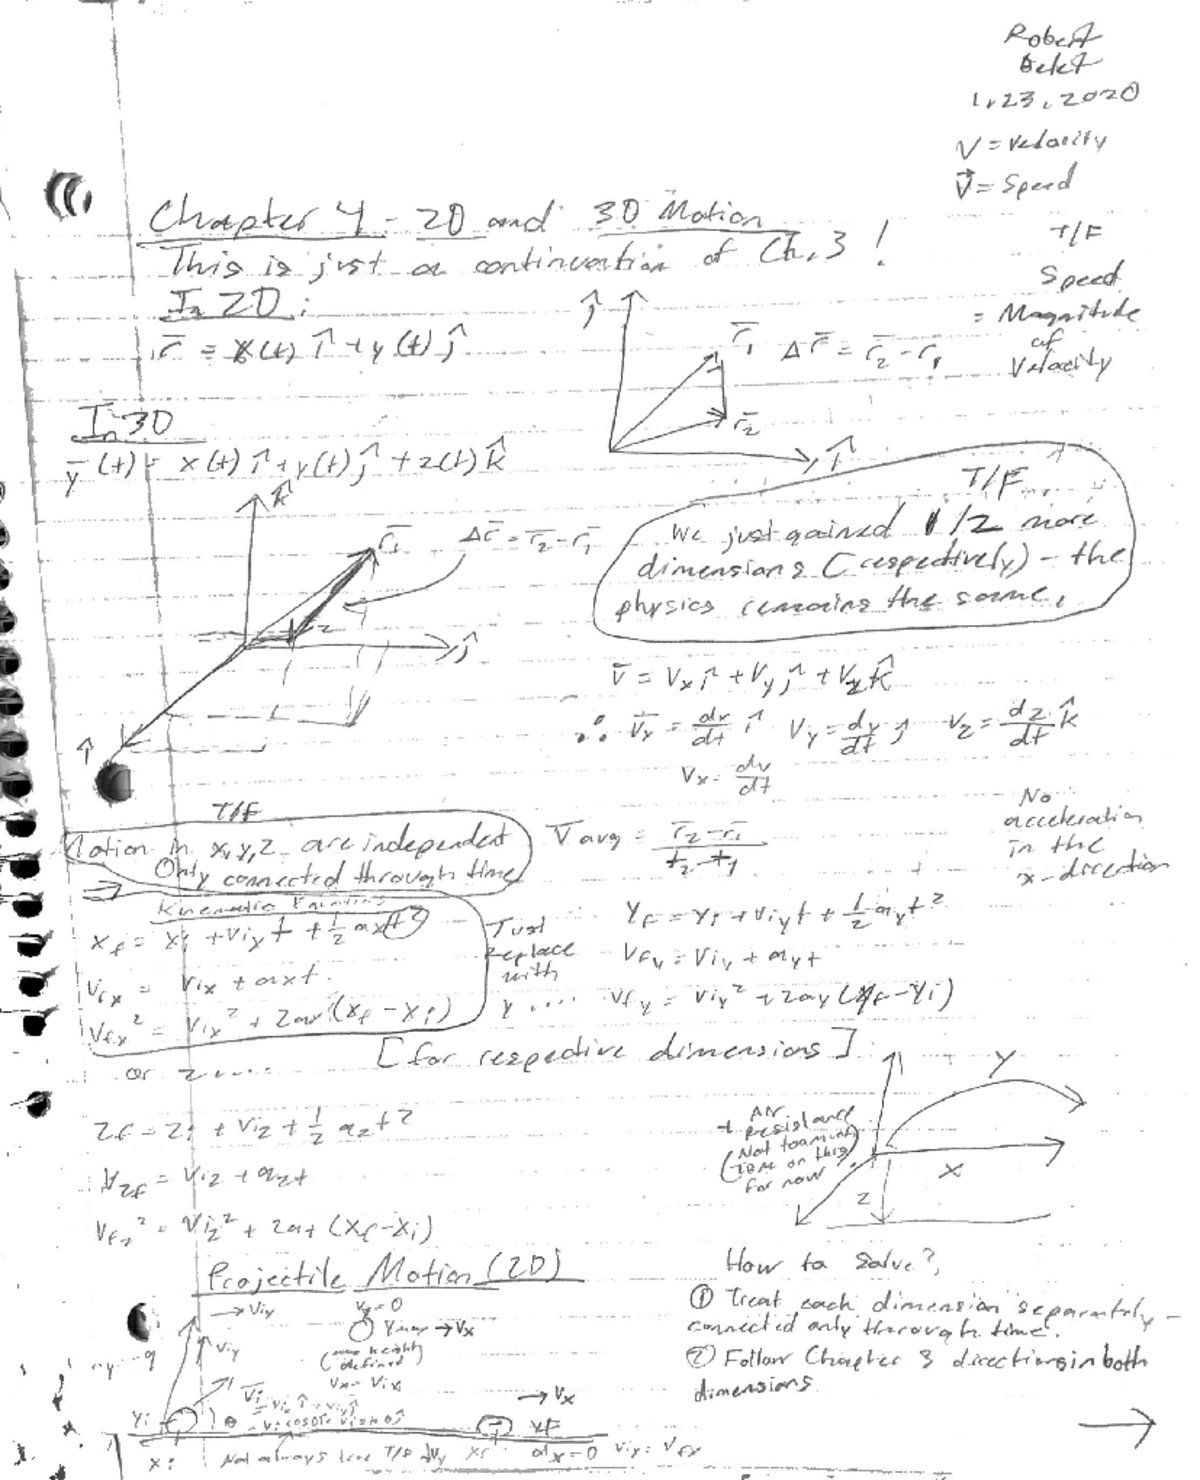 Robert
1.23.2020
V = velocity
V⃗ = Speed
T/F
Speed
= Magnitude
of
Velocity
Chapter 4 - 2D and 3D Motion
This is just a continuation of Ch. 3 !
In 2D:
r̄ = x(t) î + y(t) ĵ
ĵ
r̄₁ Δr̄ = r̄₂ - r̄₁
r̄₂
î
In 3D
r̄(t) = x(t) î + y(t) ĵ + z(t) k̂
k̂
r̄₁
Δr̄ = r̄₂ - r̄₁
2
ĵ
î
T/F
We just gained 1/2 more
dimensions (respectively) - the
physics remains the same.
v̄ = Vx î + Vy ĵ + Vz k̂
∴ v̄x = dv/dt î Vy = dy/dt ĵ Vz = dz/dt k̂
Vx = dv/dt
T/F
Motion in x,y,z are independent
Only connected through time
⇒
V̄avg = (r̄₂ - r̄₁)/(t₂ - t₁)
No
acceleration
in the
x-direction
Kinematic Equations
xf = xi + Vix t + 1/2 axt²
Vfx = Vix + axt
Vfx² = Vix² + 2ax (xf - xi)
Just
replace
with
y ....
yf = yi + Viyt + 1/2 ayt²
Vfy = Viy + ayt
Vfy = Viy² + 2ay (yf - yi)
[for respective dimensions]
or z ....
zf = zi + Viz + 1/2 azt²
Vzf = Viz + azt
Vfz² = Viz² + 2at (xf - xi)
y
x
z
+ Air
Resistance
(Not
on this)
for now
Projectile Motion (2D)
→ Viy
Viy
Vy = 0
Ymax → Vx
(max height)
(defined)
Vx = Vix
Yi
θ
→ Vx
yf
xi
Not always true T/F
Vy
xf
ax = 0 Vix = Vfx
How to Solve?
① Treat each dimension separately -
connected only through time.
② Follow Chapter 3 directions in both
dimensions.
→